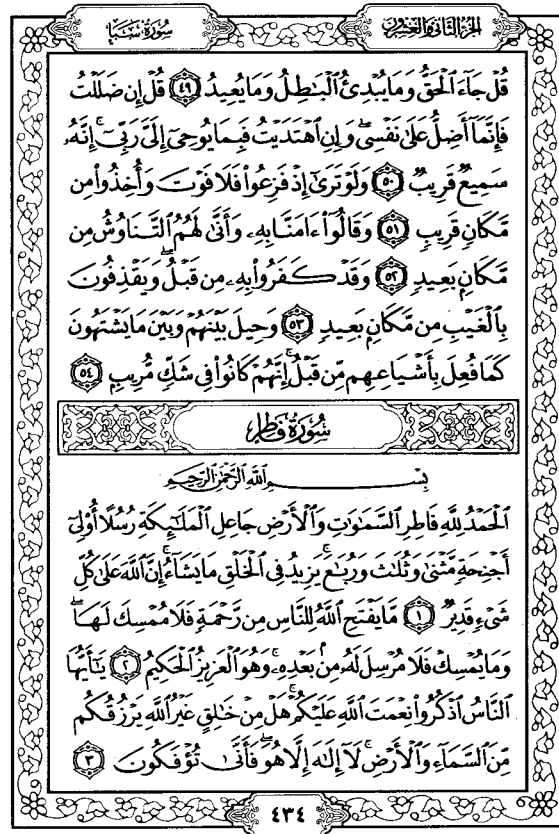 الجزء الثاني والعشرون
سورة سبإ
قُلْ جَآءَ ٱلْحَقُّ وَمَا يُبْدِئُ ٱلْبَٰطِلُ وَمَا يُعِيدُ ٤٩ قُلْ إِن ضَلَلْتُ
فَإِنَّمَآ أَضِلُّ عَلَىٰ نَفْسِى وَإِنِ ٱهْتَدَيْتُ فَبِمَا يُوحِىٓ إِلَىَّ رَبِّىٓ إِنَّهُۥ
سَمِيعٌ قَرِيبٌ ٥٠ وَلَوْ تَرَىٰٓ إِذْ فَزِعُوا۟ فَلَا فَوْتَ وَأُخِذُوا۟ مِن
مَّكَانٍ قَرِيبٍ ٥١ وَقَالُوٓا۟ ءَامَنَّا بِهِۦ وَأَنَّىٰ لَهُمُ ٱلتَّنَاوُشُ مِن
مَّكَانٍۭ بَعِيدٍ ٥٢ وَقَدْ كَفَرُوا۟ بِهِۦ مِن قَبْلُ وَيَقْذِفُونَ
بِٱلْغَيْبِ مِن مَّكَانٍۭ بَعِيدٍ ٥٣ وَحِيلَ بَيْنَهُمْ وَبَيْنَ مَا يَشْتَهُونَ
كَمَا فُعِلَ بِأَشْيَاعِهِم مِّن قَبْلُ إِنَّهُمْ كَانُوا۟ فِى شَكٍّ مُّرِيبٍۭ ٥٤
سورة فاطر
بِسْمِ ٱللَّهِ ٱلرَّحْمَٰنِ ٱلرَّحِيمِ
ٱلْحَمْدُ لِلَّهِ فَاطِرِ ٱلسَّمَٰوَٰتِ وَٱلْأَرْضِ جَاعِلِ ٱلْمَلَٰٓئِكَةِ رُسُلًا أُو۟لِىٓ
أَجْنِحَةٍ مَّثْنَىٰ وَثُلَٰثَ وَرُبَٰعَ يَزِيدُ فِى ٱلْخَلْقِ مَا يَشَآءُ إِنَّ ٱللَّهَ عَلَىٰ كُلِّ
شَىْءٍ قَدِيرٌ ١ مَّا يَفْتَحِ ٱللَّهُ لِلنَّاسِ مِن رَّحْمَةٍ فَلَا مُمْسِكَ لَهَا
وَمَا يُمْسِكْ فَلَا مُرْسِلَ لَهُۥ مِنۢ بَعْدِهِۦ وَهُوَ ٱلْعَزِيزُ ٱلْحَكِيمُ ٢ يَٰٓأَيُّهَا
ٱلنَّاسُ ٱذْكُرُوا۟ نِعْمَتَ ٱللَّهِ عَلَيْكُمْ هَلْ مِنْ خَٰلِقٍ غَيْرُ ٱللَّهِ يَرْزُقُكُم
مِّنَ ٱلسَّمَآءِ وَٱلْأَرْضِ لَآ إِلَٰهَ إِلَّا هُوَ فَأَنَّىٰ تُؤْفَكُونَ ٣
٤٣٤